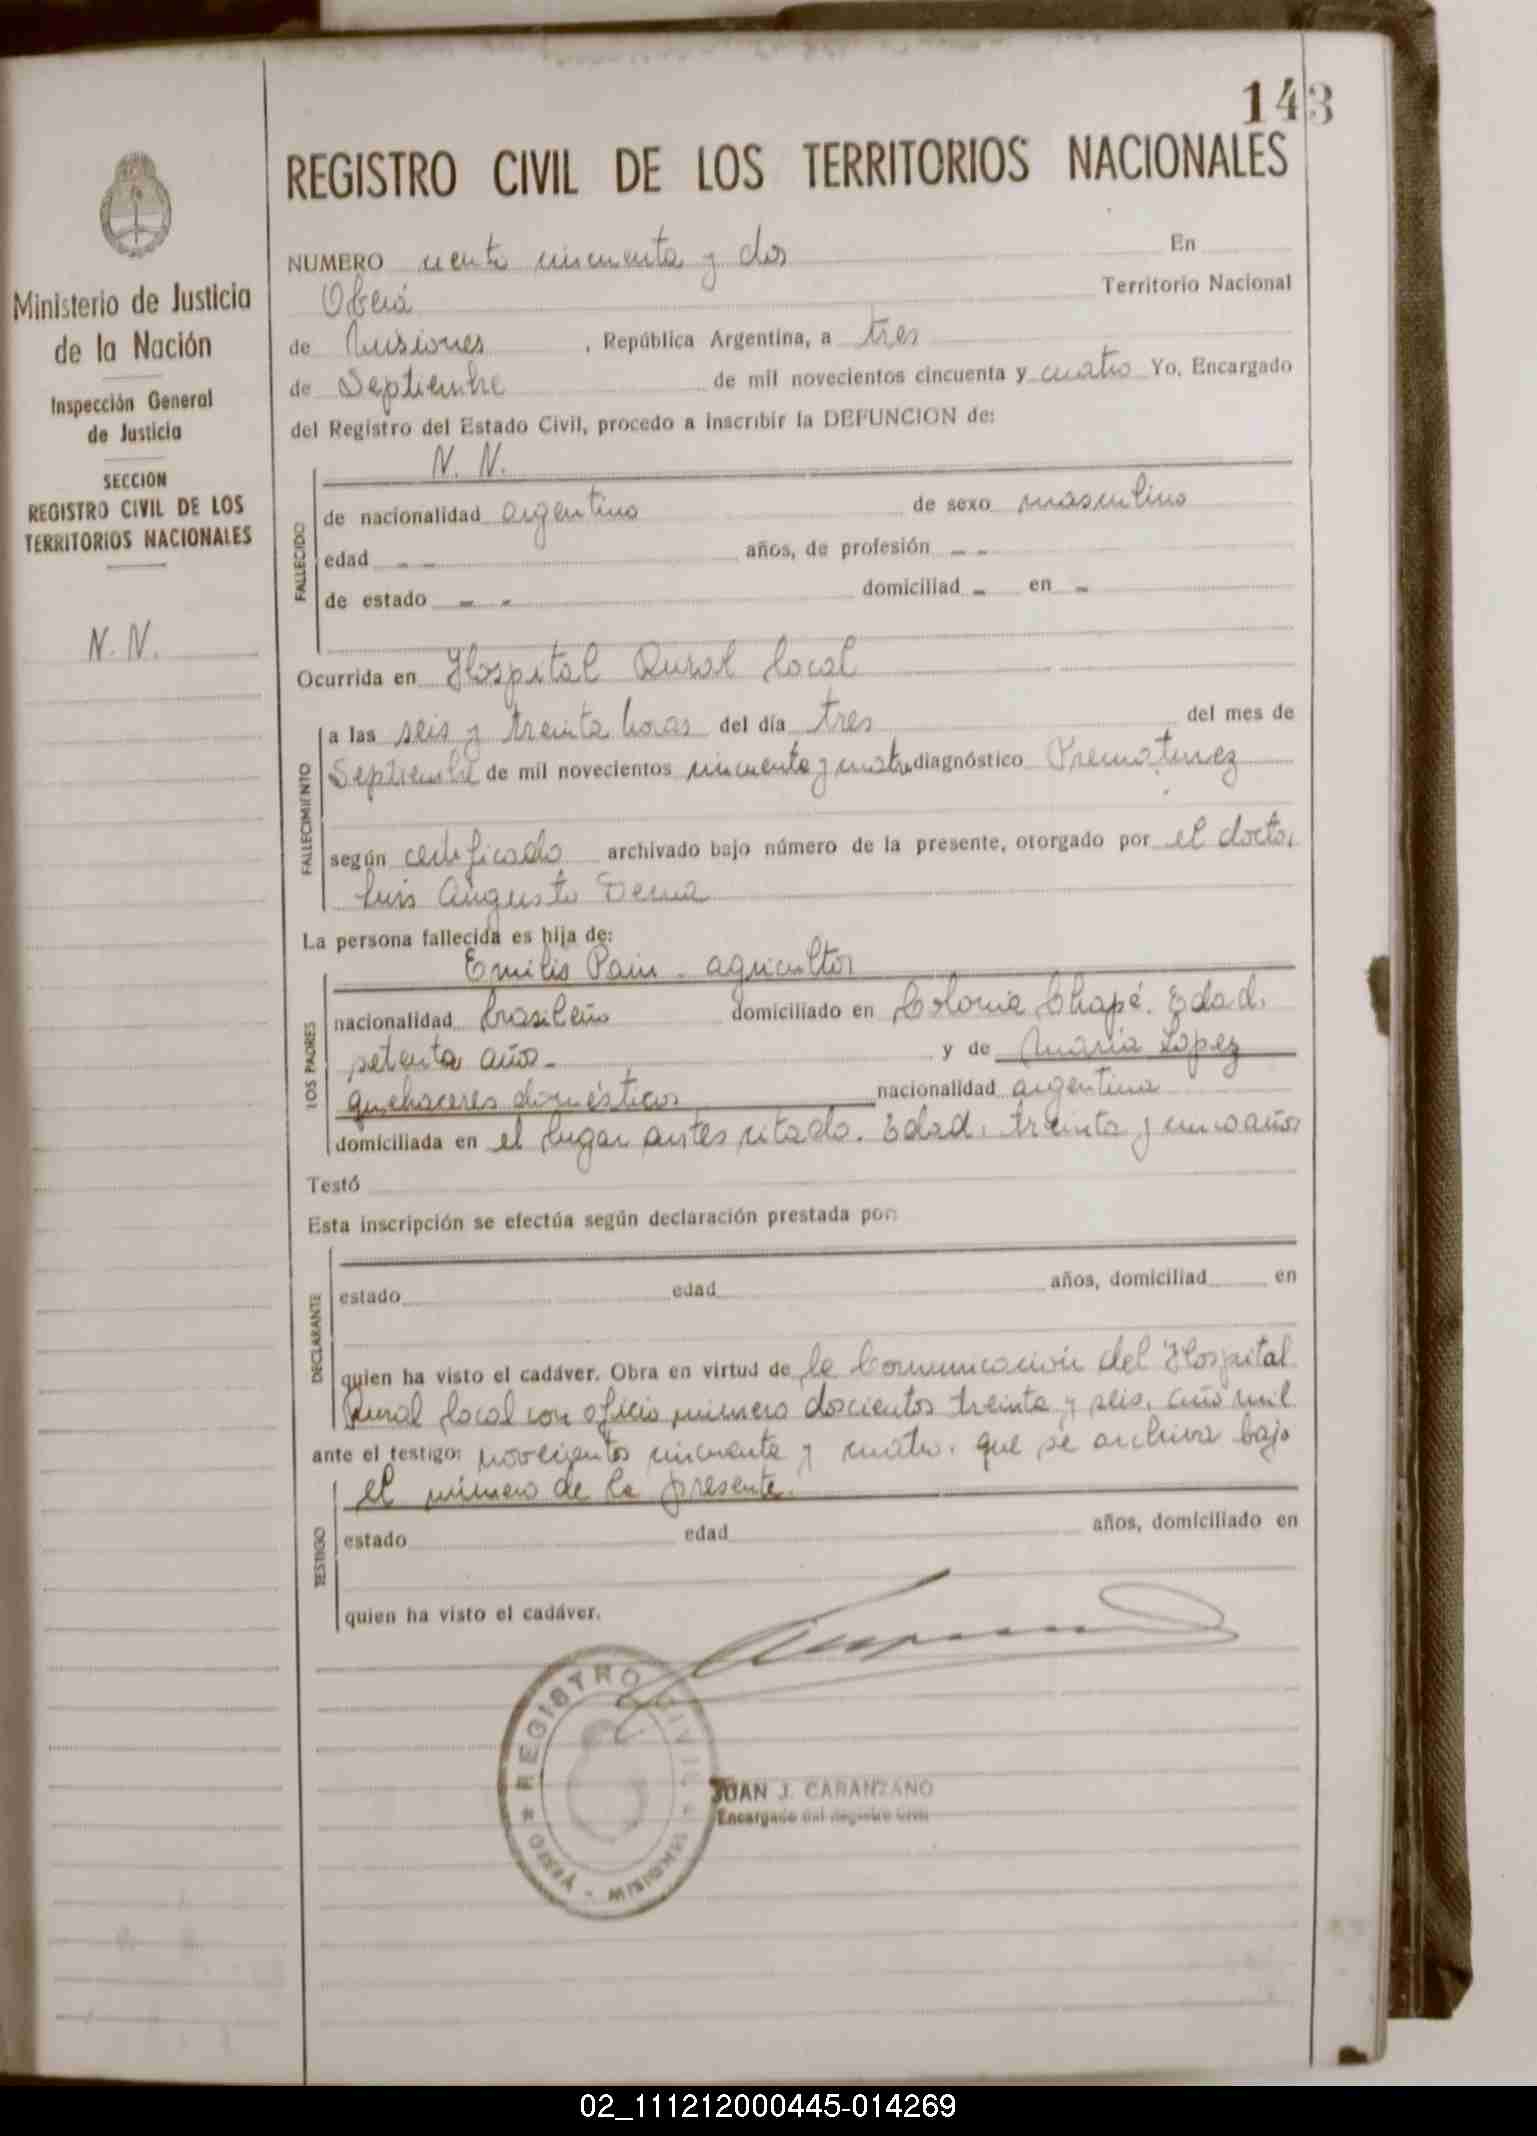 143
REGISTRO CIVIL DE LOS TERRITORIOS NACIONALES
Ministerio de Justicia
de la Nación
Inspección General
de Justicia
SECCION
REGISTRO CIVIL DE LOS
TERRITORIOS NACIONALES
N. N.
NUMERO ciento cincuenta y dos En
Oberá Territorio Nacional
de Misiones, República Argentina, a tres
de Septiembre de mil novecientos cincuenta y cuatro Yo, Encargado
del Registro del Estado Civil, procedo a inscribir la DEFUNCION de:
FALLECIDO
N. N.
de nacionalidad argentino de sexo masculino
edad - - años, de profesión - -
de estado - - domiciliad - en -
Ocurrida en Hospital Rural local
FALLECIMIENTO
a las seis y treinta horas del día tres del mes de
Septiembre de mil novecientos cincuenta y cuatro diagnóstico Prematurez
según certificado archivado bajo número de la presente, otorgado por el doctor
Luis Augusto Derna
La persona fallecida es hija de:
LOS PADRES
Emilio Pain - agricultor
nacionalidad brasileño domiciliado en Colonia Chapá. Edad.
setenta años - y de María Lopez
quehaceres domésticos nacionalidad argentina
domiciliada en el lugar antes citado. Edad. treinta y cinco años
Testó
Esta inscripción se efectúa según declaración prestada por:
DECLARANTE
estado edad años, domiciliad en
quien ha visto el cadáver. Obra en virtud de la Comunicación del Hospital
Rural local con oficio número doscientos treinta y seis, año mil
ante el testigo: novecientos cincuenta y cuatro, que se archiva bajo
el número de la presente.
TESTIGO
estado edad años, domiciliado en
quien ha visto el cadáver.
REGISTRO CIVIL
* YERBO - MISIONES *
JUAN J. CARANZANO
Encargado del Registro Civil
02_111212000445-014269